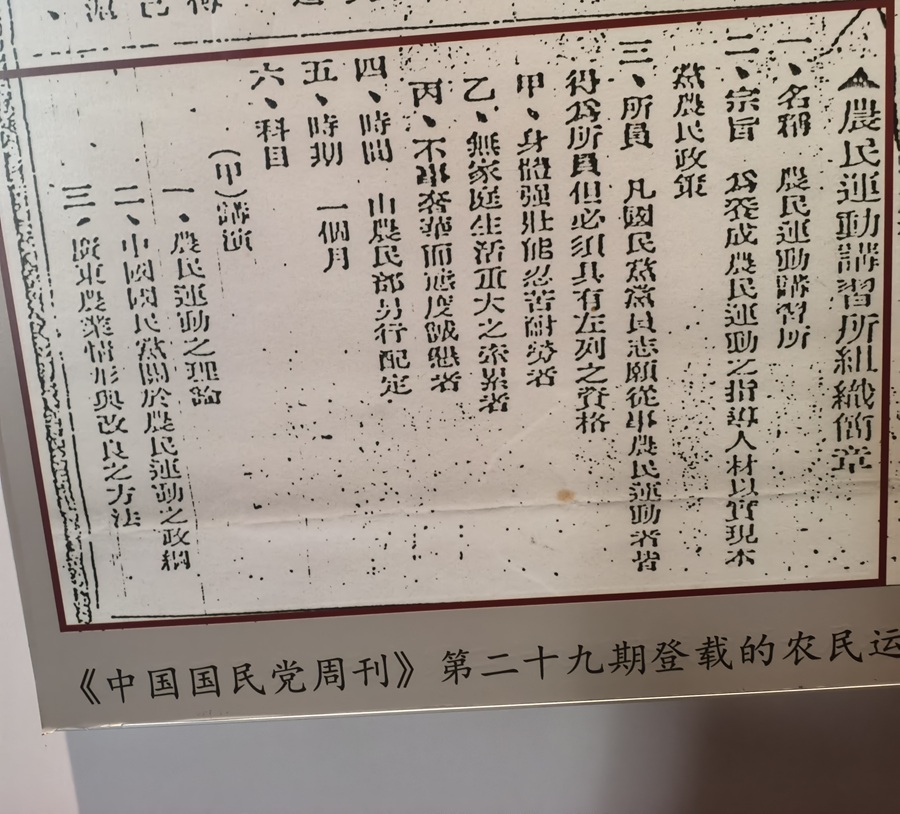 ▲農民運動講習所組織簡章
一、名稱 農民運動講習所
二、宗旨 爲養成農民運動之指導人材以實現本
黨農民政策
三、所員 凡國民黨黨員志願從事農民運動者皆
得爲所員但必須具有左列之資格
甲、身體强壯能忍苦耐勞者
乙、無家庭生活重大之牽累者
丙、不事奢華而態度誠懇者
四、時間 由農民部另行配定
五、時期 一個月
六、科目
(甲)講演
一、農民運動之理論
二、中國國民黨關於農民運動之政綱
三、廣東農業情形與改良之方法
《中国国民党周刊》第二十九期登载的农民运